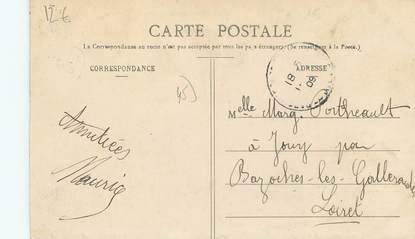 12 €
CARTE POSTALE
La Correspondance au recto n'est pas acceptée par tous les pays étrangers (Se renseigner à la Poste).
CORRESPONDANCE
ADRESSE
18
09
45
Amitiées
Maurice
Melle Marg. Portheault
à Jouy par
Bazoches-les-Gallerande
Loiret